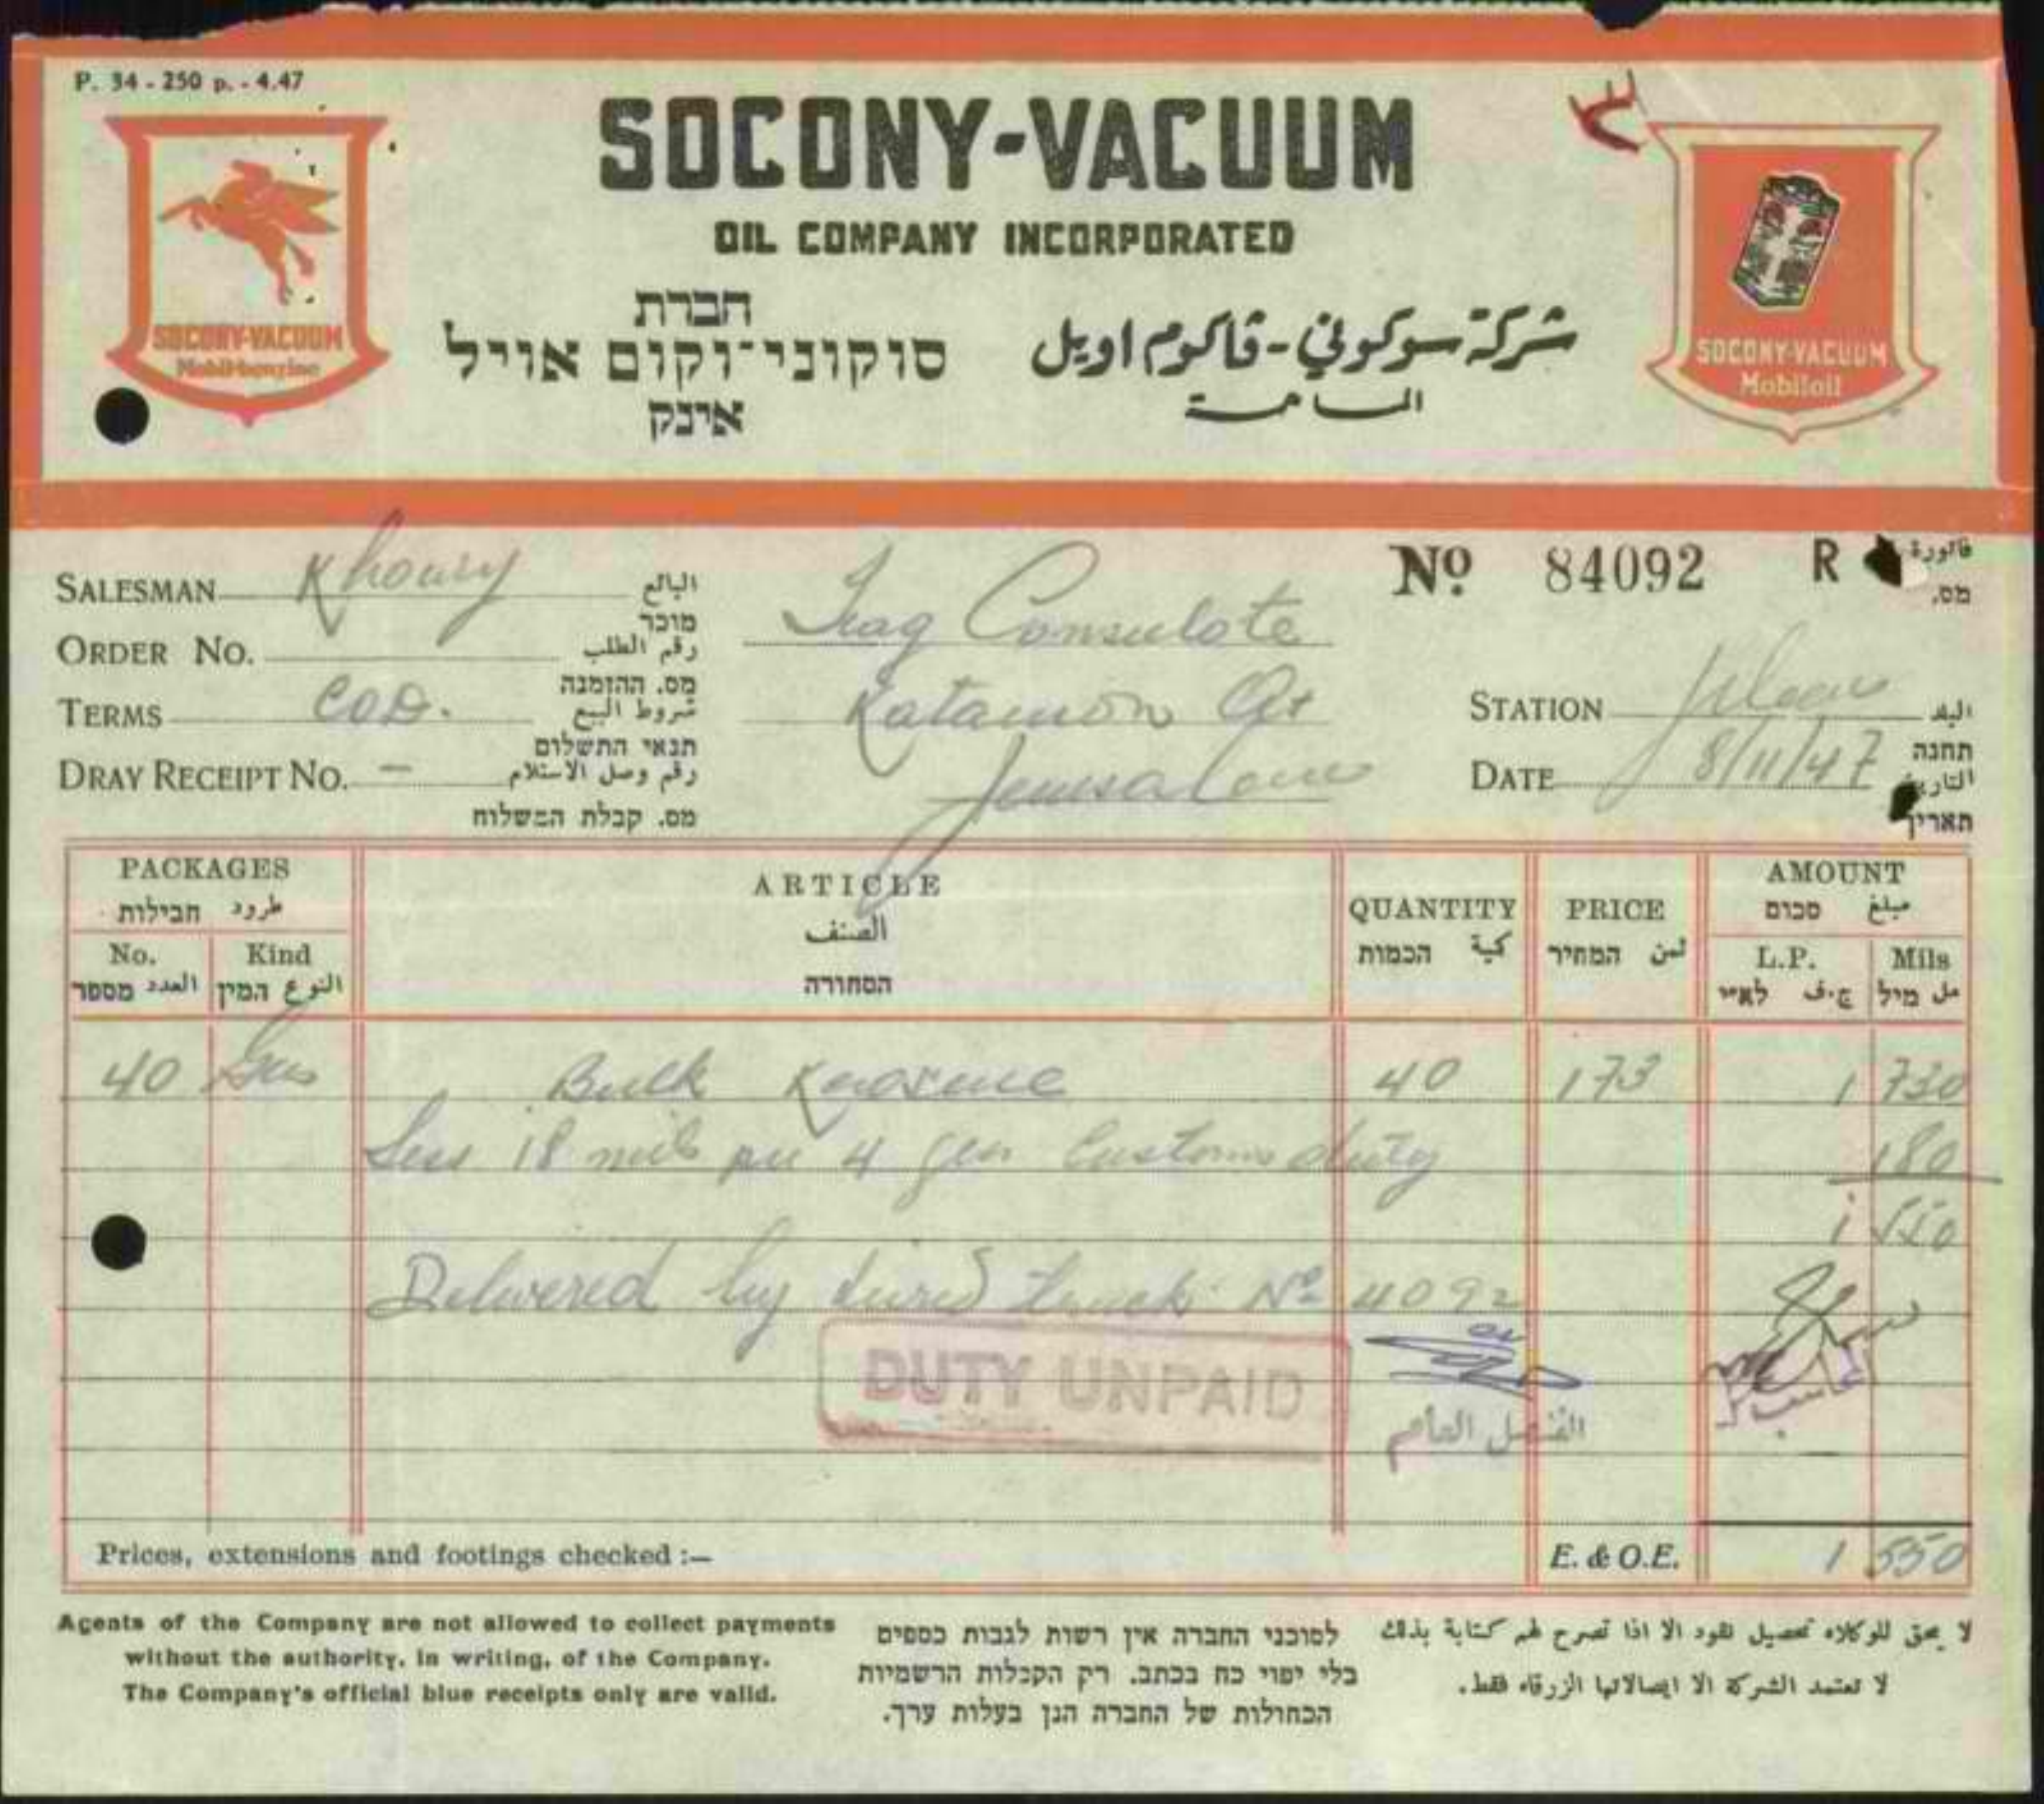 P. 34 - 250 p. - 4.47
SOCONY-VACUUM
OIL COMPANY INCORPORATED
חברת
סוקוני־וקום אויל
אינק
شركة سوكوني - ڤاكوم اويل
المساهمة
SOCONY-VACUUM
Mobilbenzine
SOCONY-VACUUM
Mobiloil
SALESMAN Khoury البائع
מוכר
ORDER No. رقم الطلب
מס. ההזמנה
TERMS COD. شروط البيع
תנאי התשלום
DRAY RECEIPT No. — رقم وصل الاستلام
מס. קבלת המשלוח
Iraq Consulate
Katamon Qr
Jerusalem
No 84092 R فاتورة
מס.
STATION Jrlem البلد
תחנה
DATE 8/11/47 التاريخ
תאריך
PACKAGES
طرود חבילות
No. Kind
العدد מספר النوع המין
ARTICLE
الصنف
הסחורה
QUANTITY
كمية הכמות
PRICE
ثمن המחיר
AMOUNT
مبلغ סכום
L.P. Mils
ج.ف לא"י مل מיל
40 Gns Bulk Kerosene 40 173 1 730
Less 18 mils per 4 gns Customs duty 180
1 550
Delivered by hired truck No 4092
DUTY UNPAID
القنصل العام
محاسب
Prices, extensions and footings checked :— E. & O.E. 1 550
Agents of the Company are not allowed to collect payments
without the authority, in writing, of the Company.
The Company's official blue receipts only are valid.
לסוכני החברה אין רשות לגבות כספים
בלי יפוי כח בכתב. רק הקבלות הרשמיות
הכחולות של החברה הנן בעלות ערך.
لا يحق للوكلاء تحصيل نقود الا اذا تصرح لهم كتابة بذلك
لا تعتمد الشركة الا ايصالاتها الزرقاء فقط.